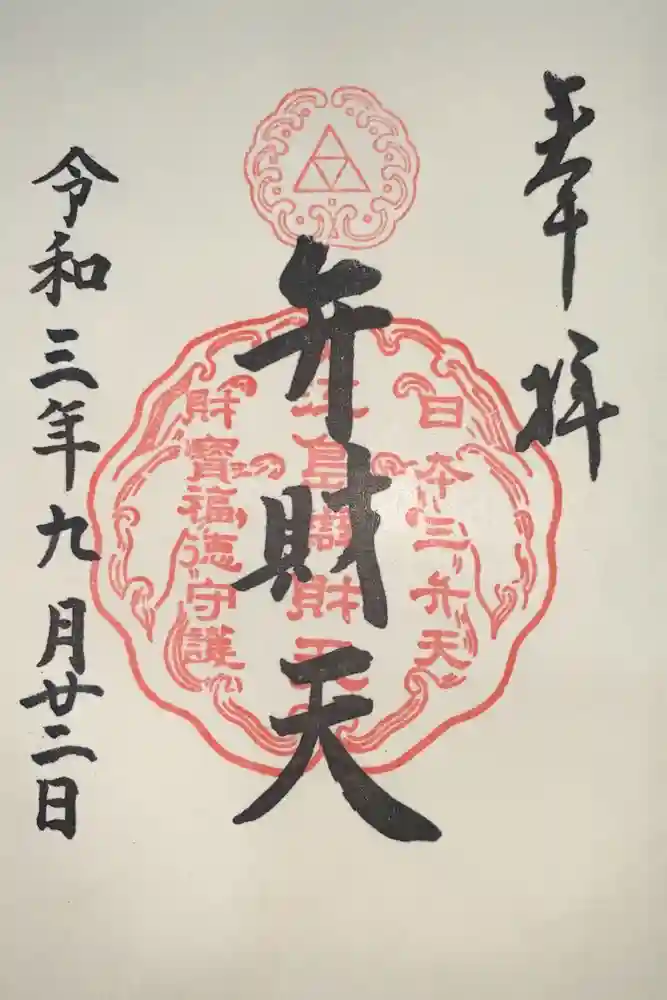 奉拝
日本三弁天
江島辯財天
弁財天
財寳福徳守護
令和三年九月廿二日